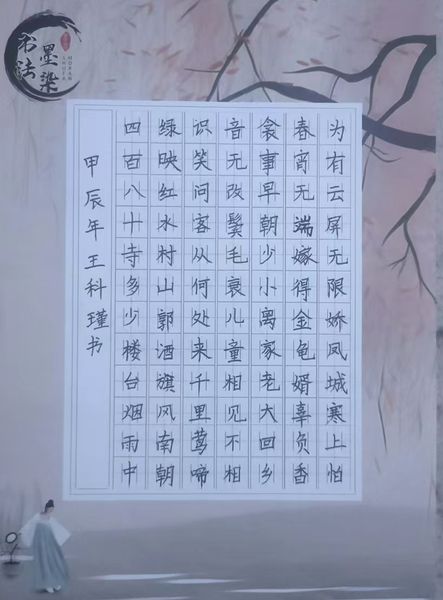 墨染
书法
为有云屏无限娇凤城寒上怕
春宵无端嫁得金龟婿辜负香
衾事早朝少小离家老大回乡
音无改鬓毛衰儿童相见不相
识笑问客从何处来千里莺啼
绿映红水村山郭酒旗风南朝
四百八十寺多少楼台烟雨中
甲辰年王科瑾书